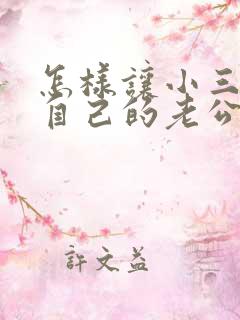 怎樣讓小三
自己的老公
許文益